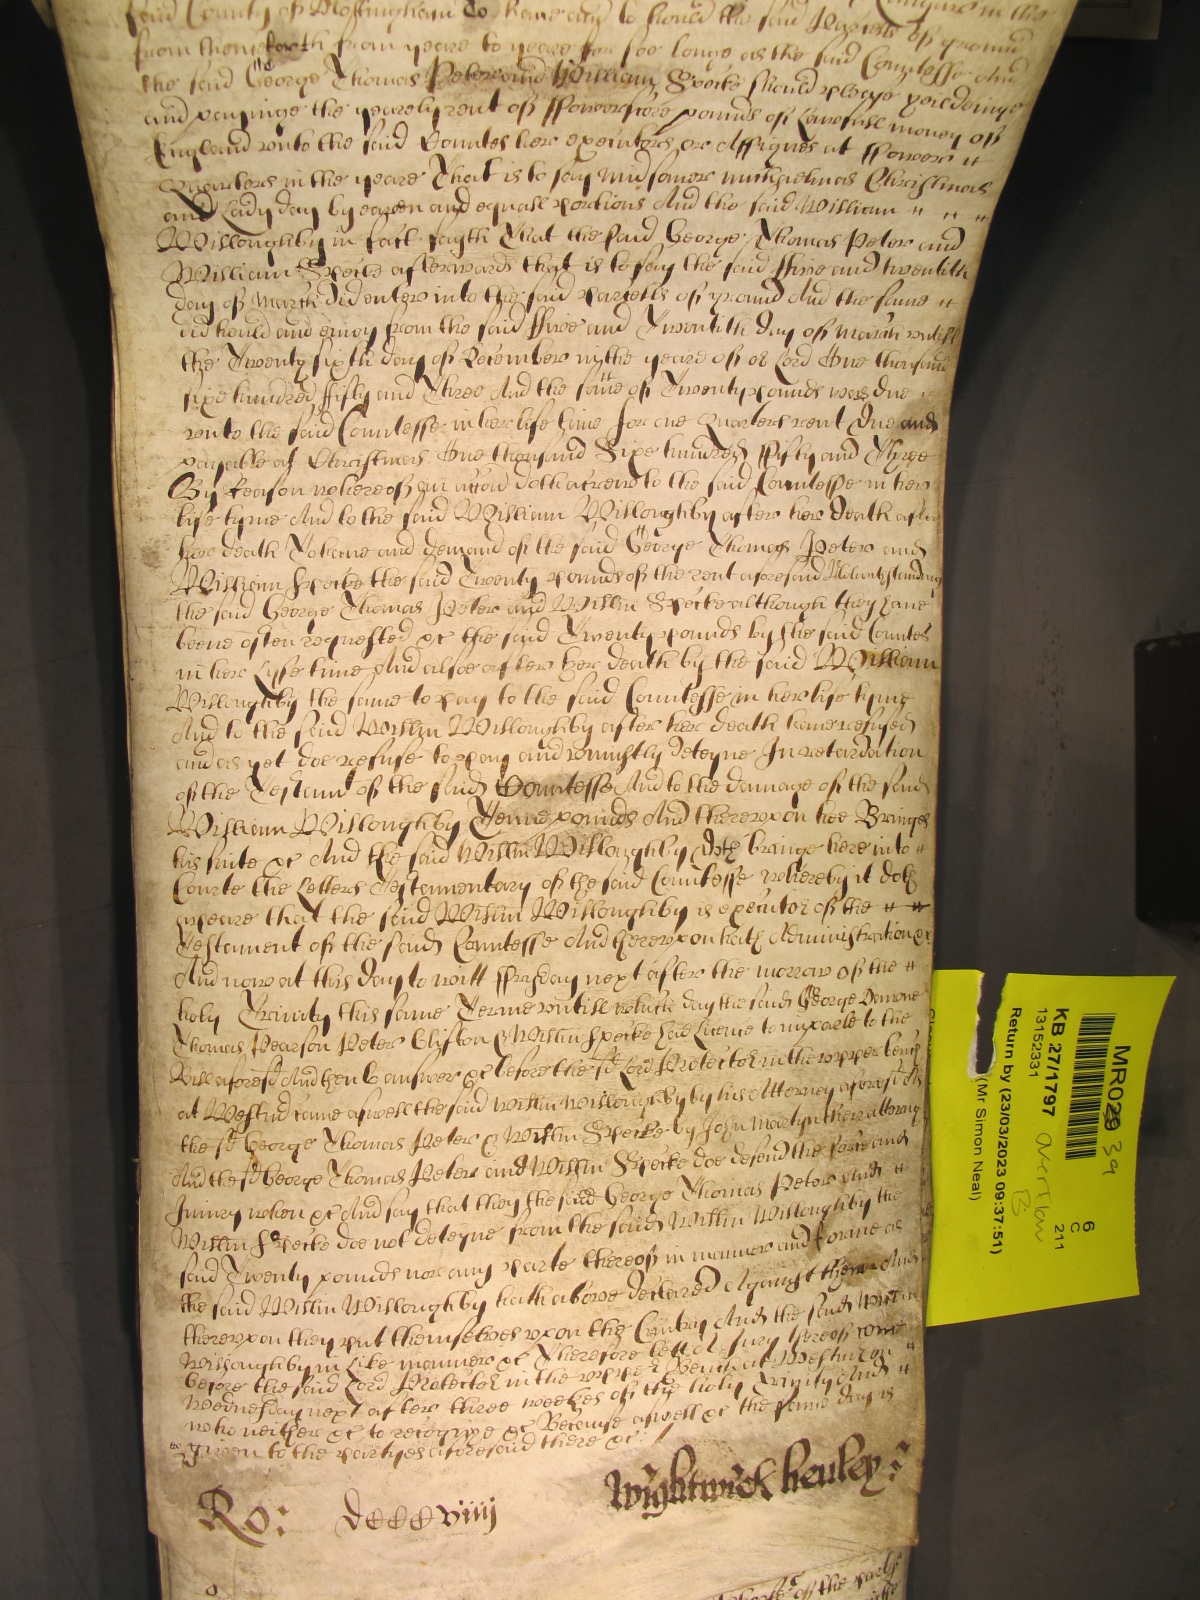 said County of Nottingham To have and to hould the said Parcells of ground
from thenceforth from yeare to yeare for soe longe as the said Countesse And
the said George Thomas Peter and William Specke should please yeeldinge
and payinge the yearely rent of ffowerscore pounds of Lawfull money of
England vnto the said Countes her executors or Assignes at ffower "
Quarters in the yeare That is to say Midsomer Michaelmas Christmas
and Lady day by eaven and equall portions And the said William " " "
Willoughby in fact sayth That the said George Thomas Peter and
William Specke afterwards that is to say the said ffive and twentith
day of March did enter into the said parcells of ground And the same "
did hould and enioy from the said ffive and Twentith day of March vntill
the Twenty sixth day of December in the yeare of or Lord One thousand
sixe hundred ffifty and Three And the same of Twenty pounds was due
vnto the said Countesse in her life time for one Quarters rent Due and
payable at Christmas One thousand Sixe hundred ffifty and Three
By Reason whereof an accon doth accrew to the said Countesse in her
life tyme And to the said William Willoughby after her death after
her death To have and demand of the said George Thomas Peter and
William Specke the said Twenty pounds of the rent aforesaid Notwithstanding
the said George Thomas Peter and Willm Specke although they have
beene often requested &c the said Twenty pounds by the said Countes
in her Lyfe time And alsoe after her death by the said William
Willoughby the same to pay to the said Countesse in her life tyme
And to the said Willm Willoughby after her death have refused
and as yet doe refuse to pay and vniustly deteyne In retardation
of the Testamt of the said Countesse And to the damage of the said
William Willoughby Tenne pounds And therevpon hee Brings
his suite &c And the said Willm Willoughby doth bringe here into "
Courte the Letters Testamentary of the said Countesse whereby it doth
appeare that the said Willm Willoughby is executor of the " "
Testament of the said Countesse And therevpon hath Administration &c
And now at this day to witt ffryday next after the morrow of the "
holy Trinity this same Terme vntill which day the said George
Thomas Pearson Peter Clifton & Willm Specke had Licence to imparle to the
Bill aforesd And then to answer &c before the sd Lord Protector in the vpper bench
at Westmr came aswell the said Willm Willoughby by his Attorney aforesd As
the sd George Thomas Peter & Willm Specke by John Martyn their attorney
And the sd George Thomas Peter and Willm Specke doe defend the force and
Iniury when &c And say that they the said George Thomas Peter and "
Willm Specke doe not deteyne from the said Willm Willoughby the
said Twenty pounds nor any parte thereof in manner and forme as
the said Willm Willoughby hath above declared Against them And
therevpon they put themselves vpon the Cuntry And the said Willm
Willoughby in Like manner &c Therefore lett a Jury thereof come
before the said Lord Protector in the vpper Bench at Westmr on "
Wednesday next after three weekes of the holy Trinity And "
who neither &c to recognize &c Because aswell &c the same day is
given to the partyes aforesaid there &c:
Ro: dccccviiij
Wightwick henley:
MR029 39
KB 27/1797 overflow
B
13152331
Return by (23/03/2023 09:37:51)
(Mr Simon Neal)
6
C
211
of the partie